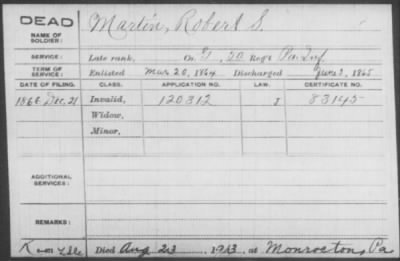 DEAD
NAME OF SOLDIER: Martin, Robert S.
SERVICE: Late rank, Co. G, 20 Reg't Pa. Inf.
TERM OF SERVICE: Enlisted Mar. 20, 1864 Discharged June 3, 1865
DATE OF FILING. CLASS. APPLICATION NO. LAW. CERTIFICATE NO.
1866 Dec. 21 Invalid, 120312 83145
Widow,
Minor,
ADDITIONAL SERVICES:
REMARKS:
Died Aug 23 1913, at Monroeton, Pa